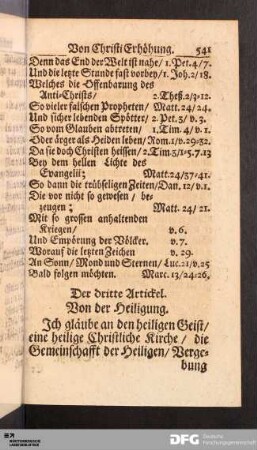 Von Christi Erhöhung. 541
Denn das End der Welt ist nahe/ 1. Pet. 4/7.
Und die lezte Stunde fast vorbey/ 1. Joh. 2/18.
Welches die Offenbarung des
Anti-Christs/ 2. Theß. 2/3-12.
So vieler falschen Propheten/ Matt. 24/24.
Und sicher lebenden Spötter/ 2 Pet. 3/ v. 3.
So vom Glauben abtreten/ 1. Tim. 4/ v. 1.
Oder ärger als Heiden leben/ Rom. 1/ v. 29-32.
Da sie doch Christen heissen/ 2 Tim. 3/1-5.7.13
Bey dem hellen Lichte des
Evangelii; Matt. 24/37-41.
So dann die trübseligen Zeiten/ Dan. 12/ v. 1.
Die vor nicht so gewesen/ be-
zeugen; Matt. 24/ 21.
Mit so grossen anhaltenden
Kriegen/ v. 6.
Und Empörung der Völcker. v. 7.
Worauf die letzten Zeichen v. 29.
An Sonn/ Mond und Sternen/ Luc. 21/ v. 25
Bald folgen möchten. Marc. 13/24-26.
Der dritte Artickel.
Von der Heiligung.
Ich gläube an den heiligen Geist/
eine heilige Christliche Kirche/ die
Gemeinschafft der Heiligen/ Verge-
bung
DFG Deutsche
Forschungsgemeinschaft